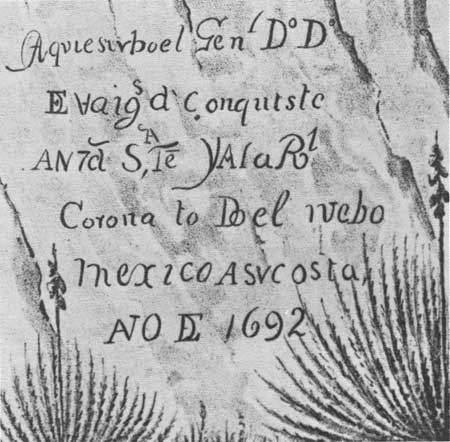 Aquiesuvboel Genl Do Do
E Vargs d Conquistc
AN7d S,A Te YAlaRl
Corona to Do el nvebo
mexicoAsvcosta,
ÃNO DE 1692